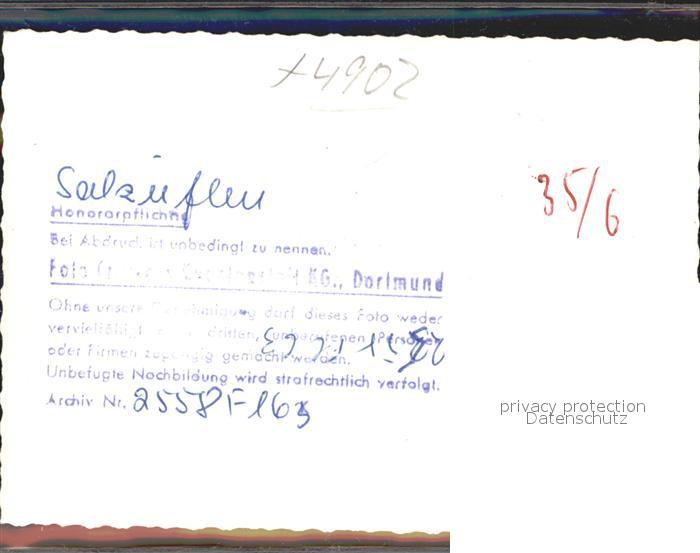 +4902
Salzuflen
35/6
Honorarpflichtig
Bei Abdruck ist unbedingt zu nennen.
Foto KG., Dortmund
Ohne unsere Genehmigung darf dieses Foto weder
vervielfältigt dritten, unberufenen Personen
oder Firmen zugängig gemacht werden.
Unbefugte Nachbildung wird strafrechtlich verfolgt.
Archiv Nr. 2558 F 163
privacy protection
Datenschutz